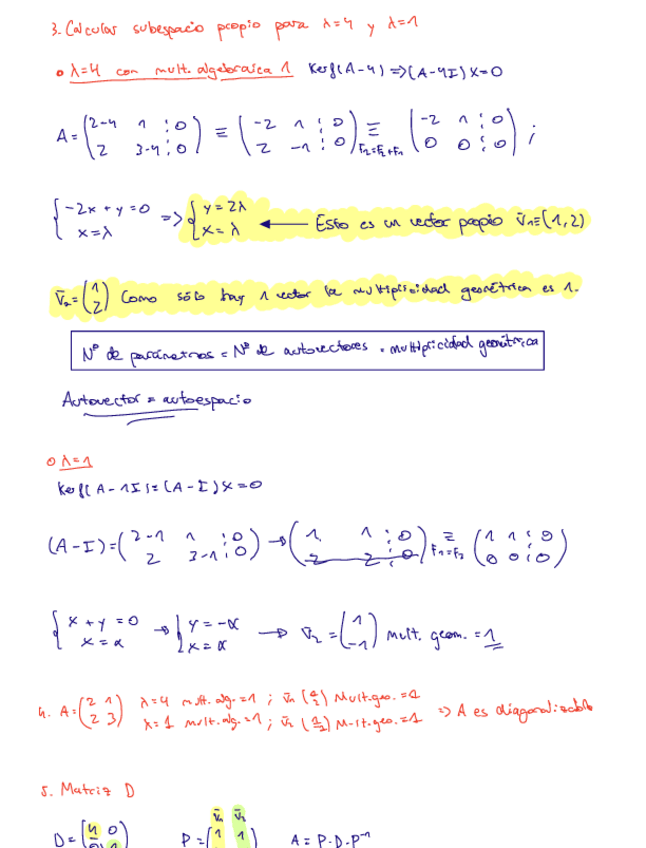 3. Calcular subespacio propio para λ=4 y λ=1
o λ=4 con mult. algebraica 1 Kerf(A-4) => (A-4I)X=0
A = (2-4 1 ¦ 0 / 2 3-4 ¦ 0) ≡ (-2 1 ¦ 0 / 2 -1 ¦ 0) ≡ F₂=F₂+F₁ (-2 1 ¦ 0 / 0 0 ¦ 0) ;
{ -2x + y = 0 / x = λ => { y = 2λ / x = λ ← Esto es un vector propio v̄₁≡(1,2)
v̄₁ = (1 / 2) Como sólo hay 1 vector la multiplicidad geométrica es 1.
Nº de parámetros = Nº de autovectores = multiplicidad geométrica
Autovector = autoespacio
o λ=1
Kerf(A-1I)=(A-I)X=0
(A-I)=(2-1 1 ¦ 0 / 2 3-1 ¦ 0) → (1 1 ¦ 0 / 2 2 ¦ 0) ≡ F₁=F₂ (1 1 ¦ 0 / 0 0 ¦ 0)
{ x + y = 0 / x = α → { y = -α / x = α → v̄₂ = (1 / -1) mult. geom. = 1
4. A = (2 1 / 2 3) λ=4 mult. alg. = 1 ; v̄₁ (1 / 2) Mult.geo. = 1
λ=1 mult. alg. = 1 ; v̄₂ (1 / -1) Mult.geo. = 1 => A es diagonalizable
5. Matriz D
v̄₁ v̄₂
D = [4 0 P = [1 1 A = P·D·P⁻¹